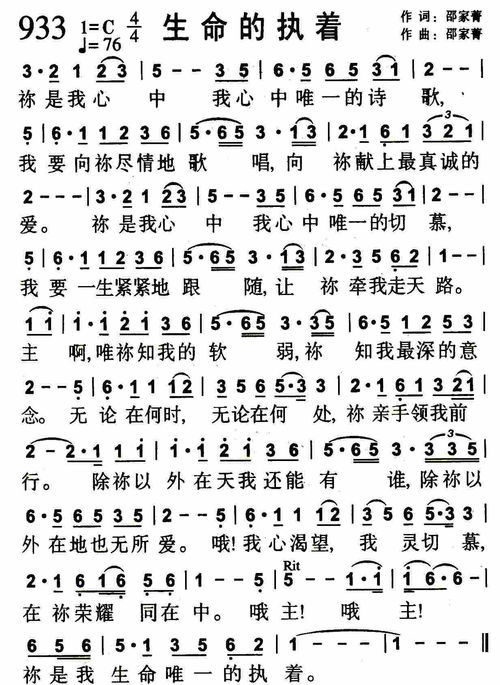 933 1=C 4/4 ♩=76 生命的执着 作词:邵家菁
作曲:邵家菁
3·2 1 23 | 5 - - 3 5 | 6·5 6 5 31 | 2 - - |
祢是我心 中 我心 中唯一的诗 歌,
5 | 6·1 1 2 3 6 | 5·65 3·13 | 2·1 6 1 3 2 1 |
我 要向祢尽情地 歌 唱,向 祢献上最真诚的
2 - - - | 3·2 1 23 | 5 - - 3 5 | 6·5 6 5 31 | 2 - - |
爱。 祢是我心 中 我心中唯一的切慕,
5 | 6·1 1 2 3 6 | 5·65 3·13 | 2·3 5 6 2 | 1 - - |
我要一生紧紧地 跟 随,让 祢 牵我走天 路。
1 1 | 1·1 2 1 3 6 | 5·65 3·35 | 6·5 1 2 5 3 |
主 啊,唯祢知我的 软 弱,祢 知我最深的意
2 - - 5 | 6·1 1 12 | 3 5 6 5 5·3 | 2·1 6 1 3 21 |
念。 无 论在何时, 无论在何 处,祢 亲手领我前
2 - 2·1 1 1 | 1·1 2 1 3 6 | 5·65 3·3 3 5 |
行。 除祢以 外在天我还能 有 谁,除祢以
6·5 6 5 3 5 | 2 - - 5 | 6·1 1 12 | 3 5 6 5 5·3 |
外在地也无所 爱。 哦!我心渴望, 我 灵切慕,
2·1 6 16 5 6 | 1 - - 5 | Rit 5 - - 1·1 | 1 6·6 - |
在祢荣耀 同在中。 哦主! 哦 主!
6 5 6 5 | 5·1 3 5 6 2 | 1 - - - | 1 - - 0 ‖
祢是我 生命唯一的执 着。